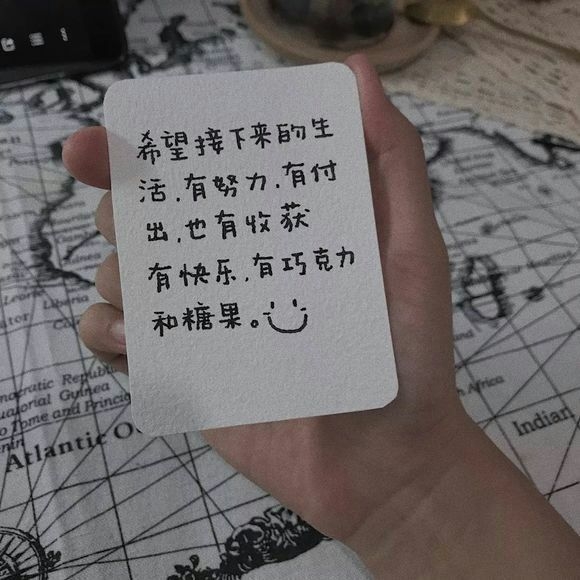 希望接下来的生
活,有努力,有付
出,也有收获
有快乐,有巧克力
和糖果。
Liberia
Democratic Republic
Equatorial Guinea
Sao Tome and Principe
Benin
Atlantic
Africa
Indian